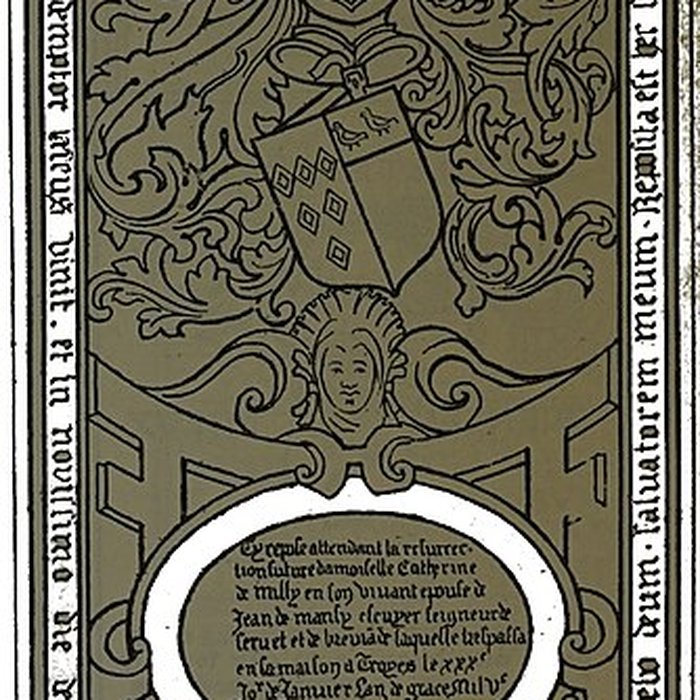 emptor meus vivit . et in novissimo die
deum · salvatorem meum · Reposita est
Cy repose attendant la resurrec-
tion future damoiselle Catherine
de milly en son vivant epouse de
Jean de mansy escuyer seigneur de
servet et de brevia de laquelle trespassa
en sa maison a Troyes le xxxe
Jor de Janvier Lan de grace